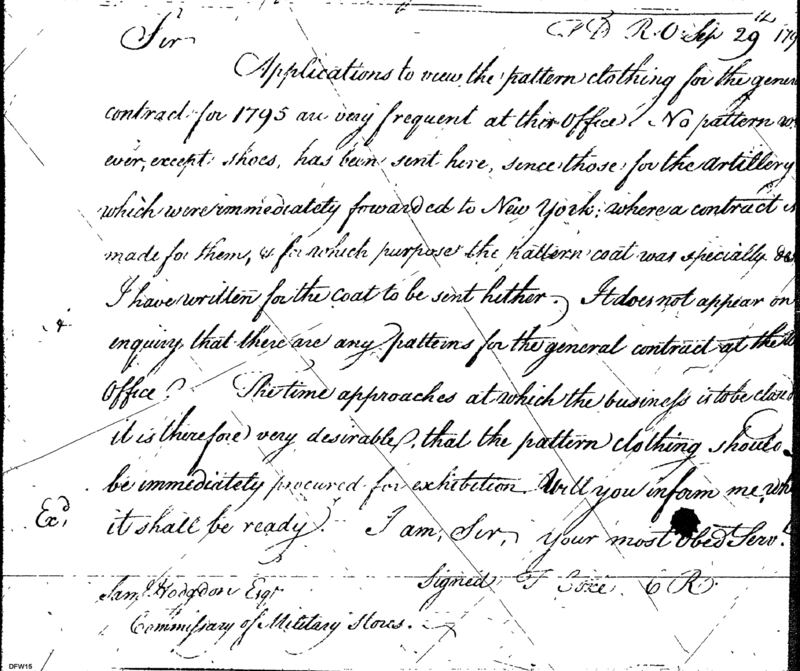 Sir T D R.O. Sep 29th 179
Applications to view the pattern clothing for the gener
contract for 1795 are very frequent at this Office. No pattern
ever, except shoes, has been sent here, since those for the artillery
which were immediately forwarded to New York; where a contract
made for them, & for which purpose the pattern coat was specially
I have written for the coat to be sent hither. It does not appear on
enquiry that there are any patterns for the general contract at the
Office. The time approaches at which the business is to be closed
it is therefore very desirable, that the pattern clothing should
be immediately procured for exhibition. Will you inform me, wh
Exd. it shall be ready. I am, Sir, your most Obed Serv.t
Signed T Coxe C R
Saml. Hodgdon Esqr
Commissary of Military Stores.
DFW15